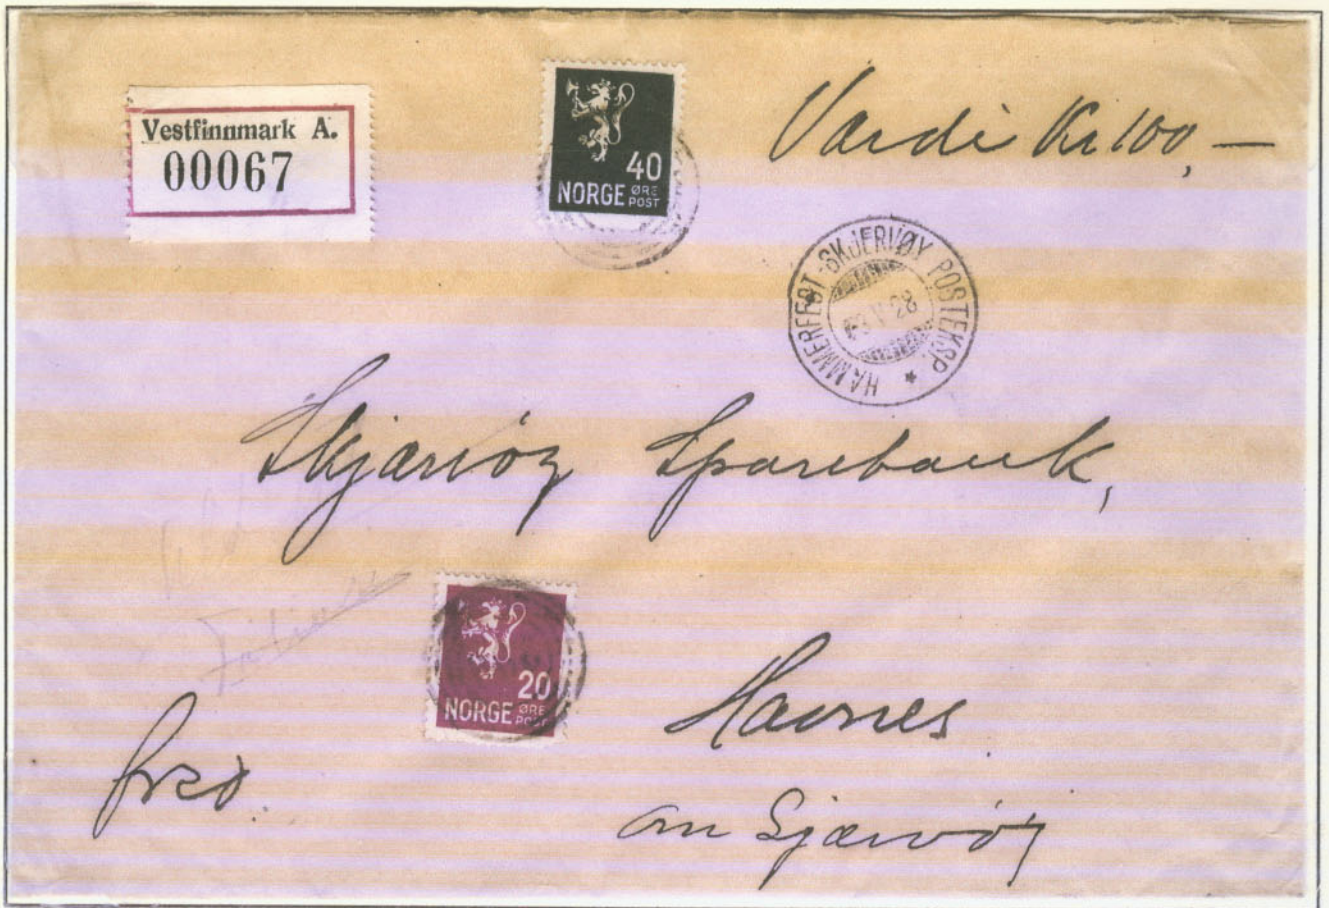 Vestfinnmark A.
00067
40
NORGE ØRE POST
Værdi Kr 100,—
HAMMERFEST-SKJERVØY POSTEKSP
V 28
Skjærvöy Sparebank,
20
NORGE ØRE POST
Havnes
om Sjærvöy